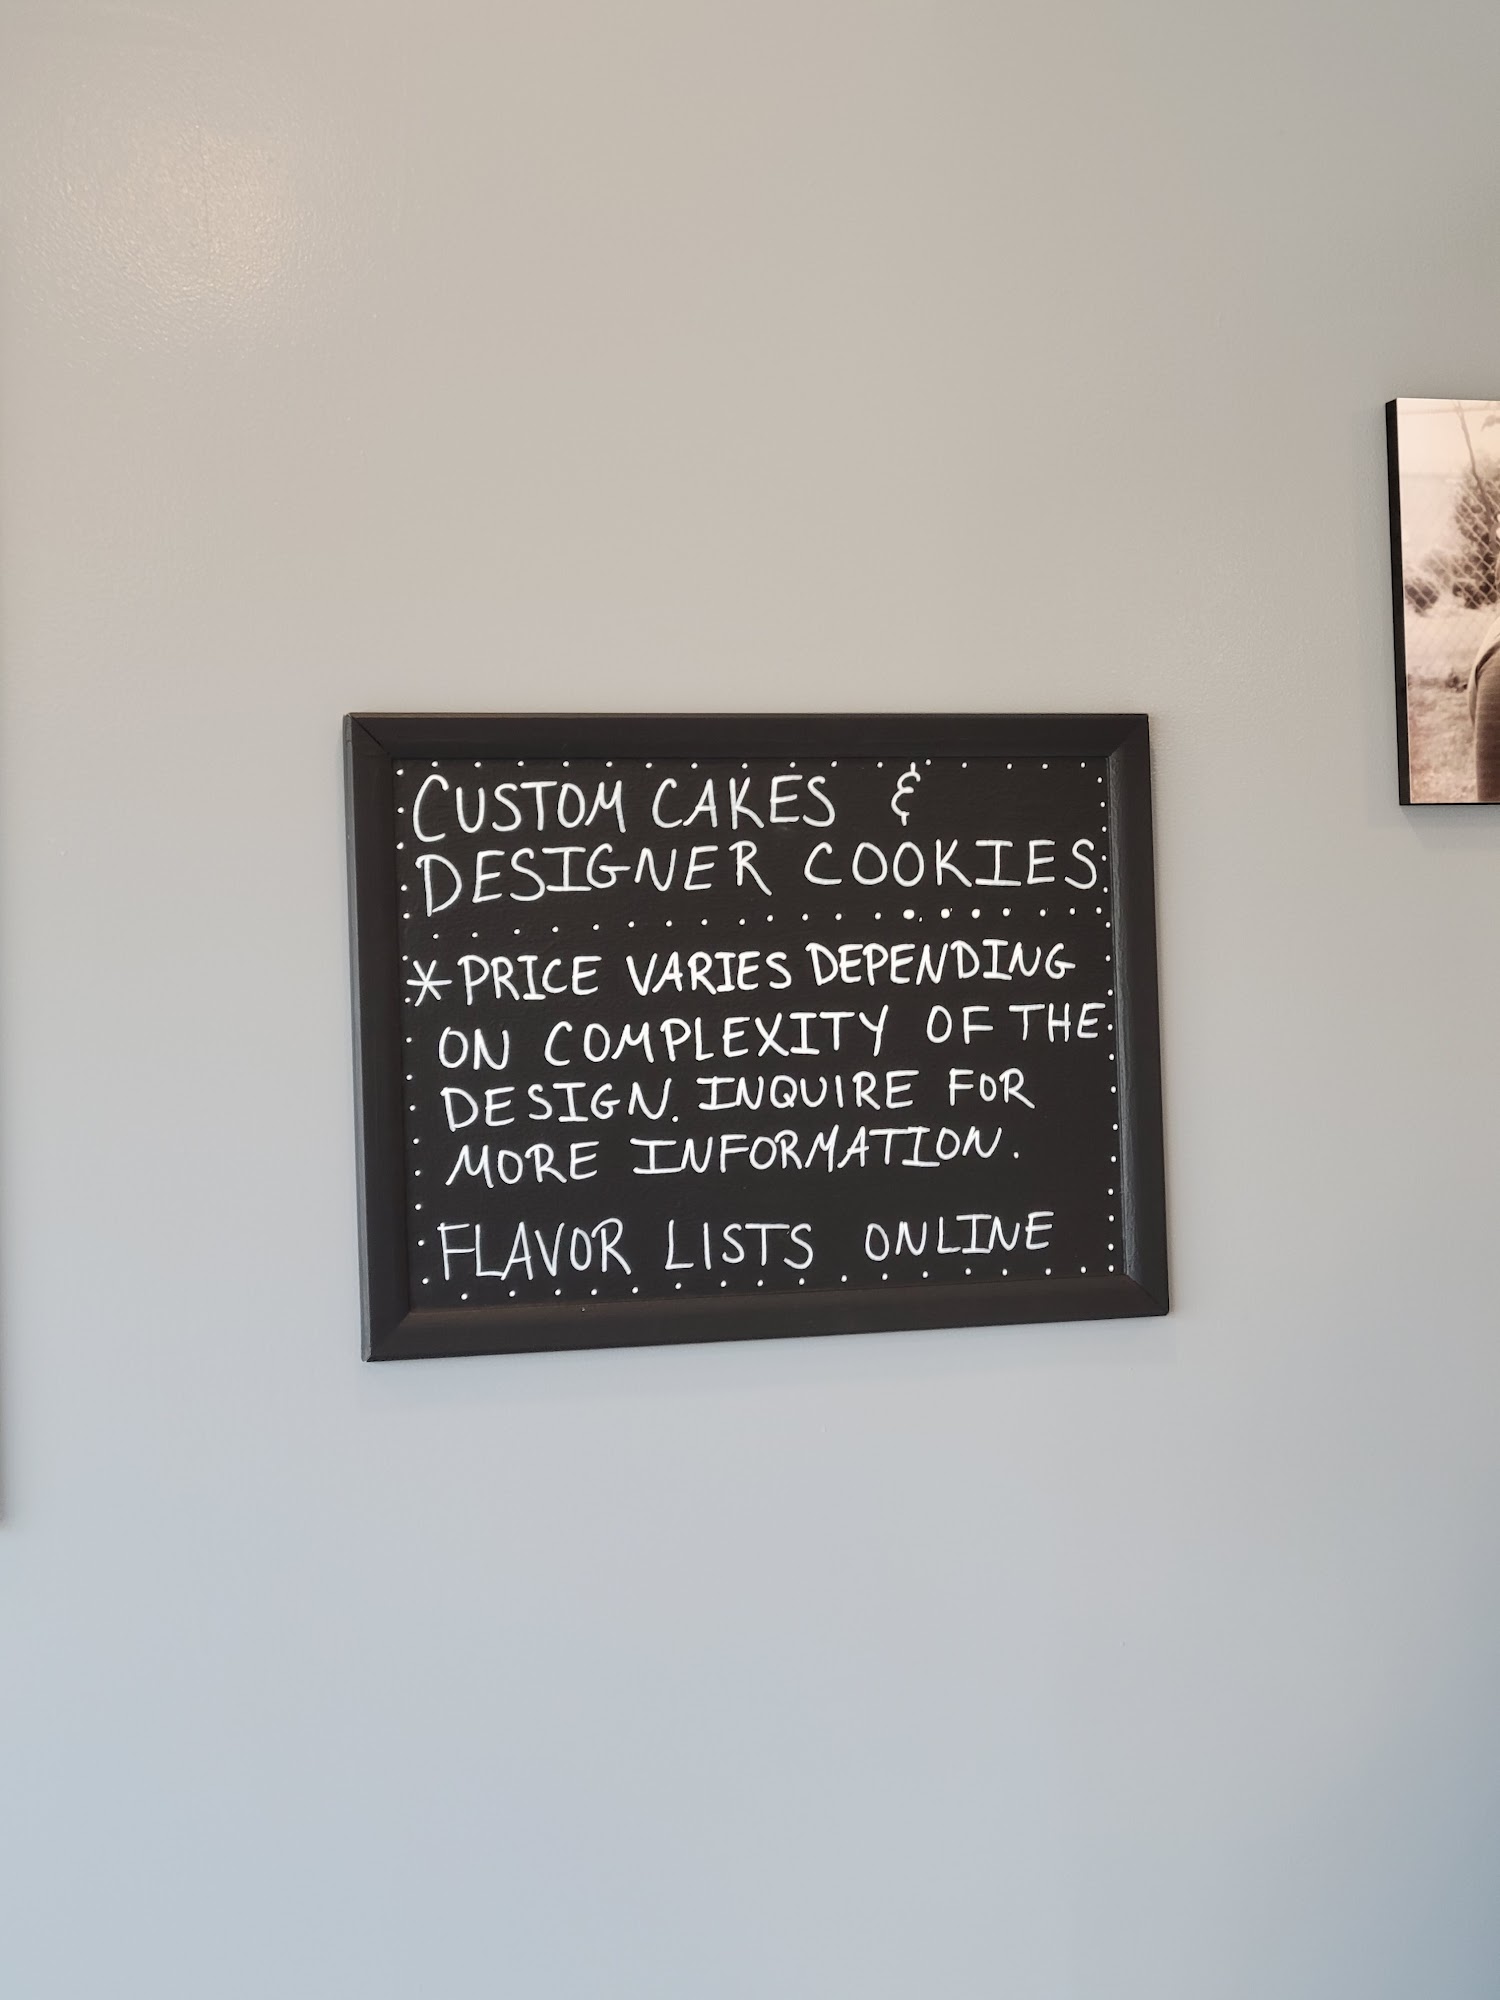 CUSTOM CAKES &
DESIGNER COOKIES
*PRICE VARIES DEPENDING
ON COMPLEXITY OF THE
DESIGN. INQUIRE FOR
MORE INFORMATION.
FLAVOR LISTS ONLINE